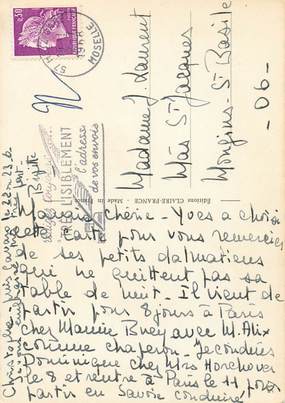 0,30
57
1968
MOSELLE
LISIBLEMENT
l'adresse
de vos envois
Madame J. Laurent
Mas St Jacques
Mougins-St Basile
-06-
Éditions CLAIRE-FRANCE - Made in France
Maman chérie - Yves a choisi
cette carte pour vous remercier
de ses petits dalmatiens
qui ne quittent pas sa
table de nuit - Il vient de
partir pour 8 jours à Paris
chez Mamie Buey avec M. Alix
comme chaperon - Je conduis
Dominique chez Mrs Horchover
le 8 et rentre à Paris le 11 pour
partir en Savoie conduire
Christophe